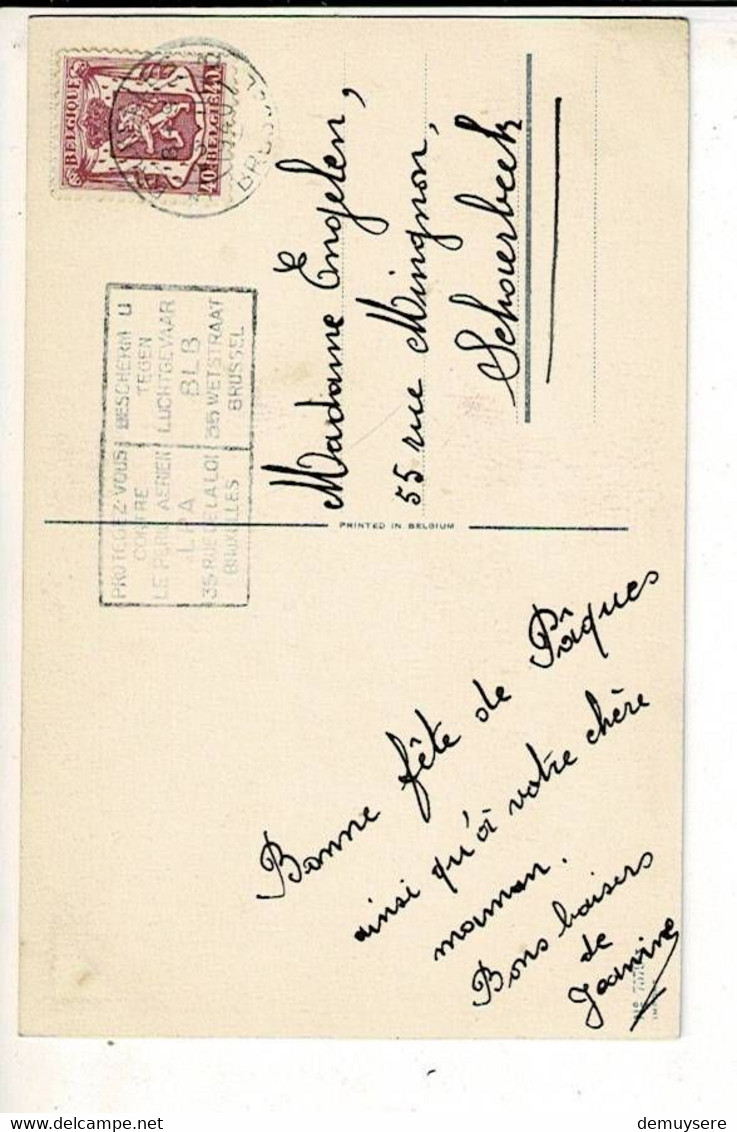 BELGIQUE
40c BELGIË 40c
BESCHERM U
TEGEN
LUCHTGEVAAR
BLB
35 WETSTRAAT
BRUSSEL
PROTEGEZ-VOUS
CONTRE
LE PERIL AERIEN
LPA
35 RUE DE LA LOI
BRUXELLES
Madame Engelen,
55 rue Mingnon,
Schaerbeek
PRINTED IN BELGIUM
Bonne fête de Pâques
ainsi qu'à votre chère
maman.
Bons baisers
de
Jeanine
demuysere